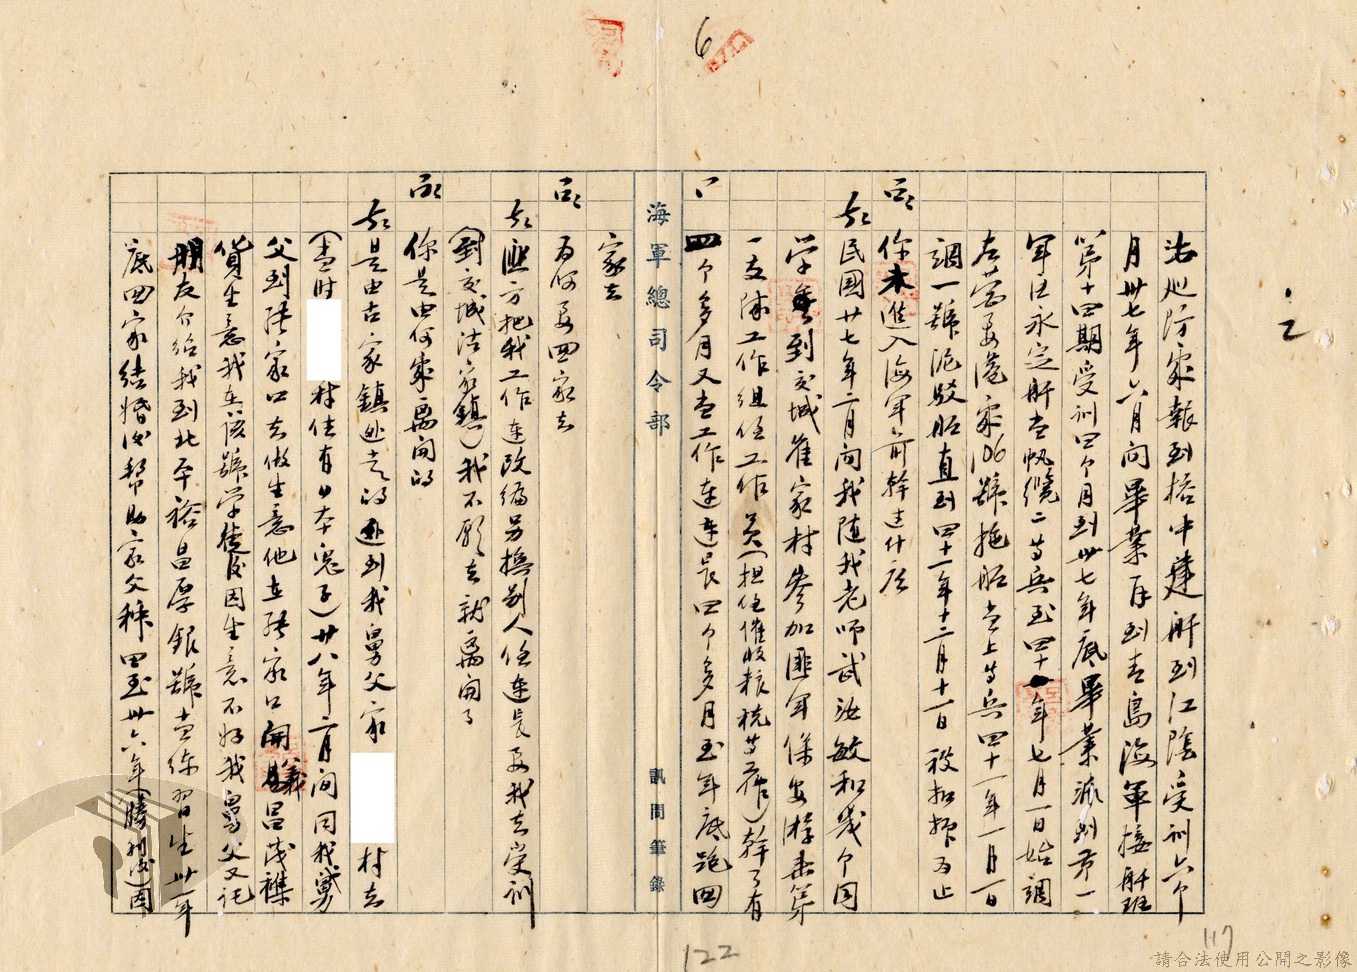 6
法巡防處報到搭中建舰到江陰受訓六个
月卅七年六月间畢業后到青島海軍接舰班
第十四期受訓四个月到卅七年底畢業派到第一
军区永定舰當帆纜二等兵至四十一年七月一日始調
左營要港處106號拖船當上等兵四十一年一月一日
調一號泥駁船直到四十一年十二月十一日被扣押为止
问 你未進入海军前幹过什広
答 民國廿七年二月间我随我老师武汝敏和幾个同
学到交城崔家村参加匪军保安游击第
一支隊工作组任工作員(担任催收粮税等工作)幹了有
四个多月又當工作連連長四个多月至年底跑回
海軍總司令部
訊問筆錄
家去
问 为何要回家去
答 匪方把我工作連改編另換别人任連長要我去受訓
(到交城洁家鎮)我不願去就离開了
问 你是由何處离開的
答 是由古家鎮处走的还到我舅父家 村去
(當时 村住有日本鬼子)廿八年二月间同我舅
父到張家口去做生意他在張家口開義昌茂襍
貨生意我在该號学徒後因生意不好我舅父又託
朋友介绍我到北平裕昌厚銀號當练習生卅一年
底回家结婚後帮助家父种田至卅六年(勝利後)因
122
117
請合法使用公開之影像